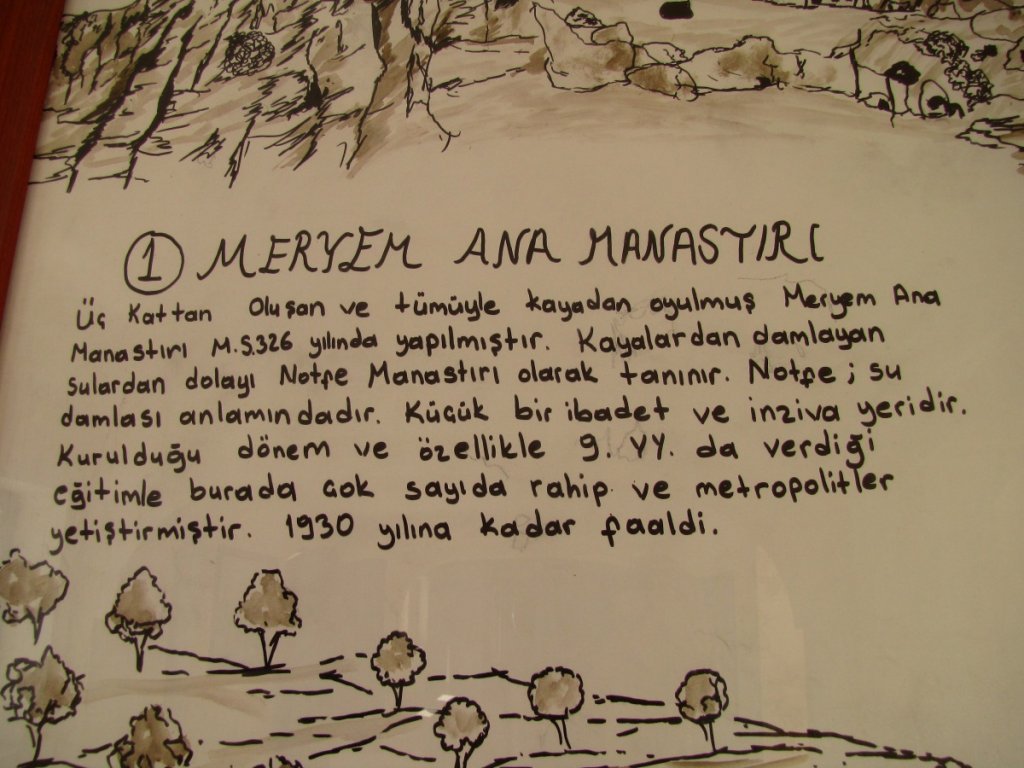 1 MERYEM ANA MANASTIRI
Üç Kattan Oluşan ve tümüyle kayadan oyulmuş Meryem Ana
Manastırı M.S.326 yılında yapılmıştır. Kayalardan damlayan
sulardan dolayı Notfe Manastırı olarak tanınır. Notfe; su
damlası anlamındadır. Küçük bir ibadet ve inziva yeridir.
Kurulduğu dönem ve özellikle 9. YY. da verdiği
eğitimle burada çok sayıda rahip ve metropolitler
yetiştirmiştir. 1930 yılına kadar faaldi.